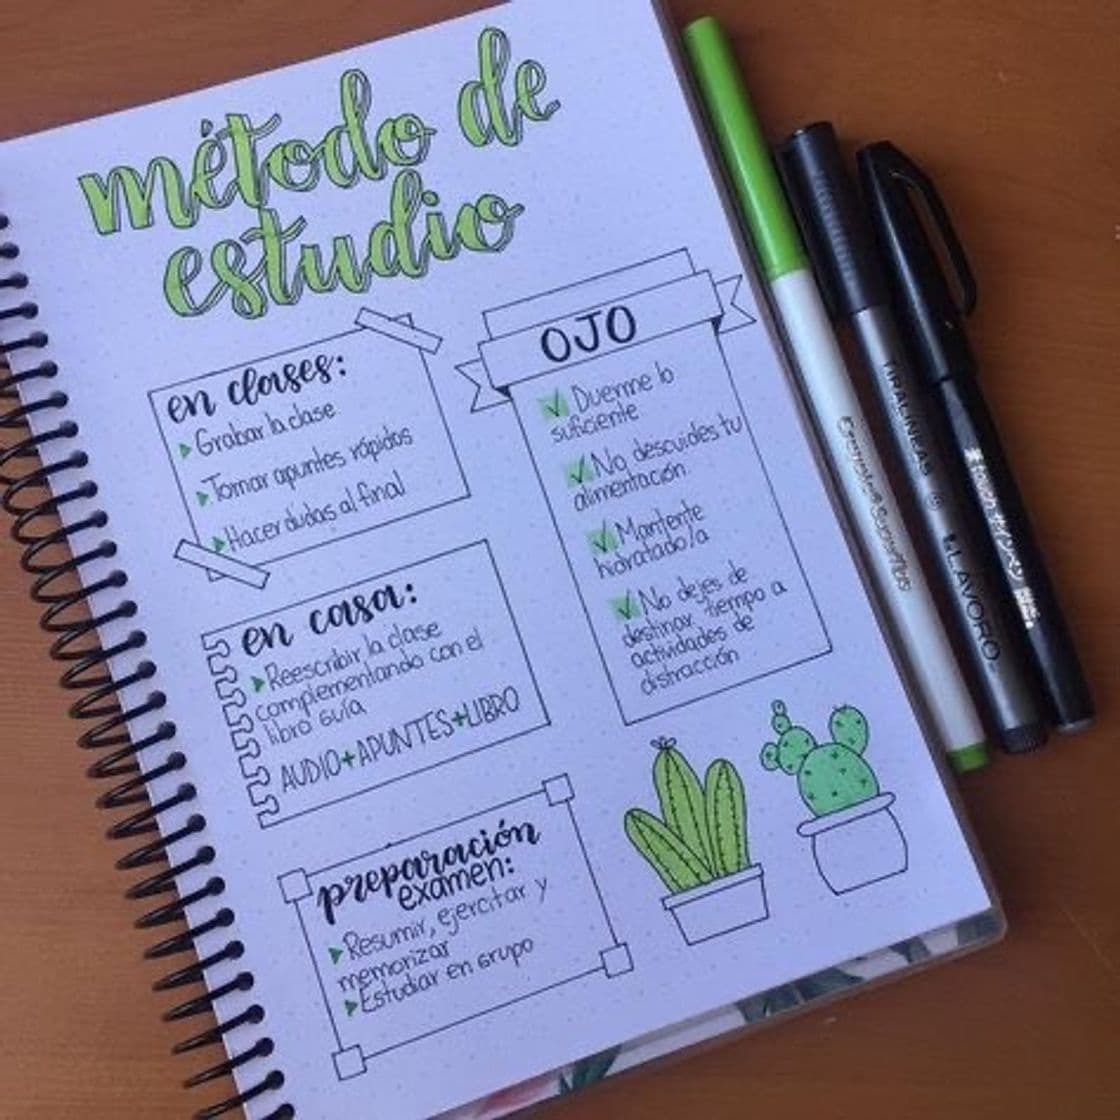 método de
estudio
en clases:
Grabar la clase
Tomar apuntes rápidos
Hacer dudas al final
en casa:
Reescribir la clase
complementando con el
libro guía
AUDIO+APUNTES+LIBRO
preparación
examen:
Resumir, ejercitar y
memorizar
Estudiar en grupo
OJO
Duerme lo
suficiente
No descuides tu
alimentación
Mantente
hidratado/a
No dejes de
destinar tiempo a
actividades de
distracción
TIRALINEAS
LAVORO
Touch